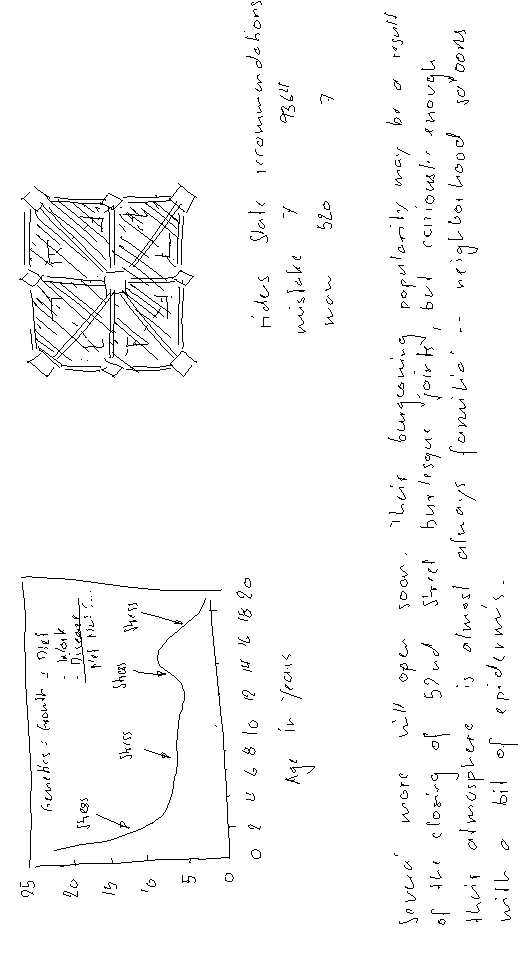 Genetics = Growth = Diet
- Work
- Disease
Stress
Stress
Stress
Stress
25
20
15
10
5
0
0 2 4 6 8 10 12 14 16 18 20
Age in Years
riders State recommendations
mistake 7 9364
now 520 7
Several more will open soon. Their burgeoning popularity may be a result
of the closing of 52nd Street burlesque joints, but curiously enough
their atmosphere is almost always familial -- neighborhood saloons
with a bit of epidermis.